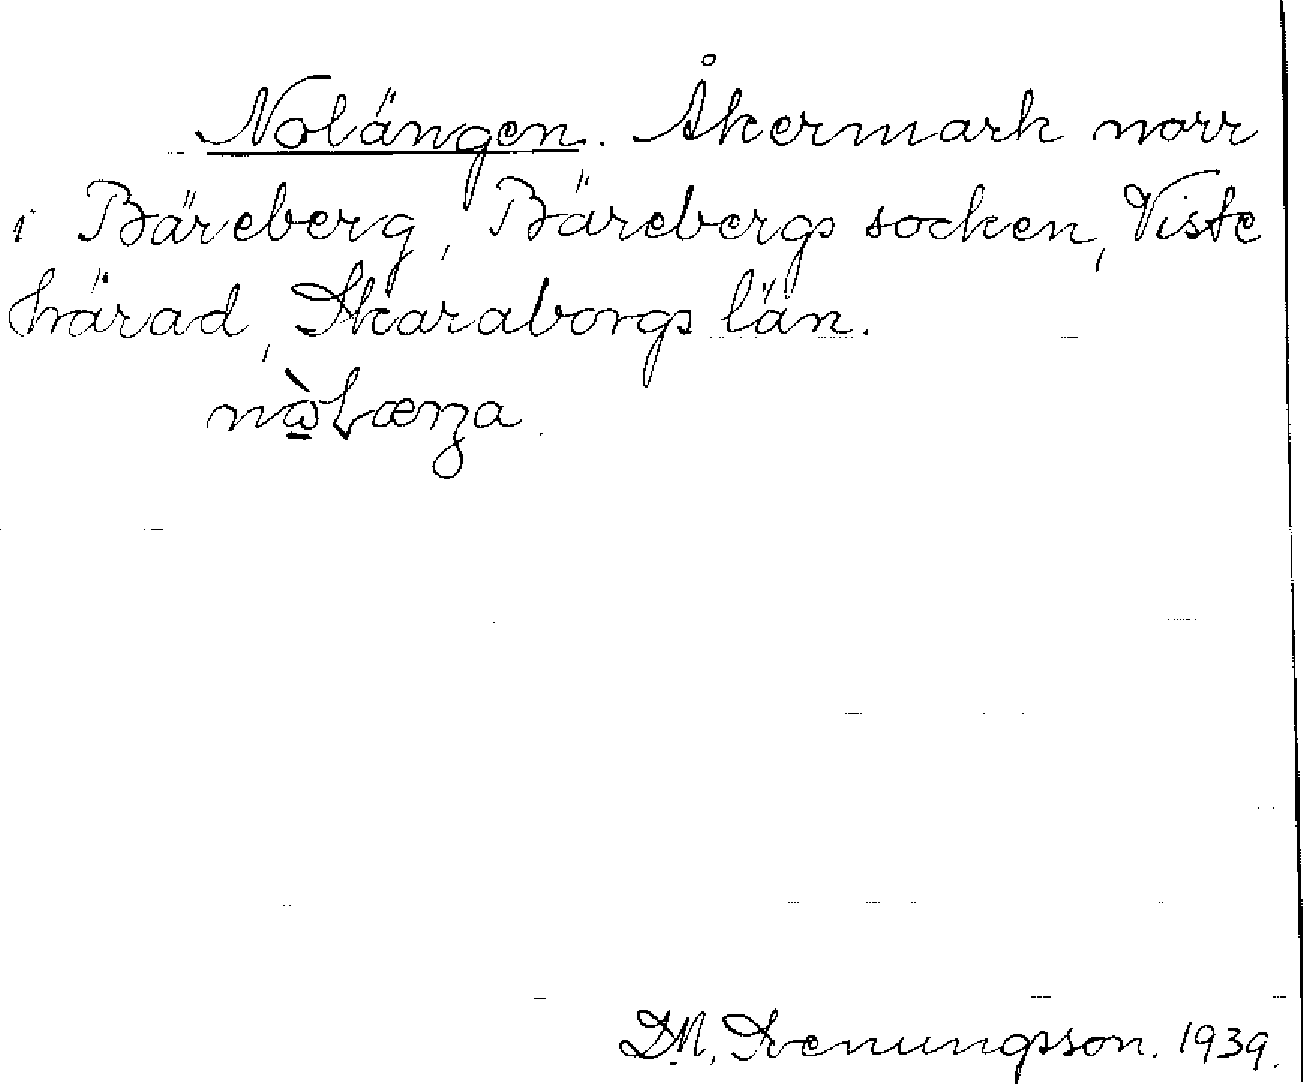 Nolängen. Åkermark norr
i Bäreberg, Bärebergs socken, Viste
härad, Skaraborgs län.
1939.